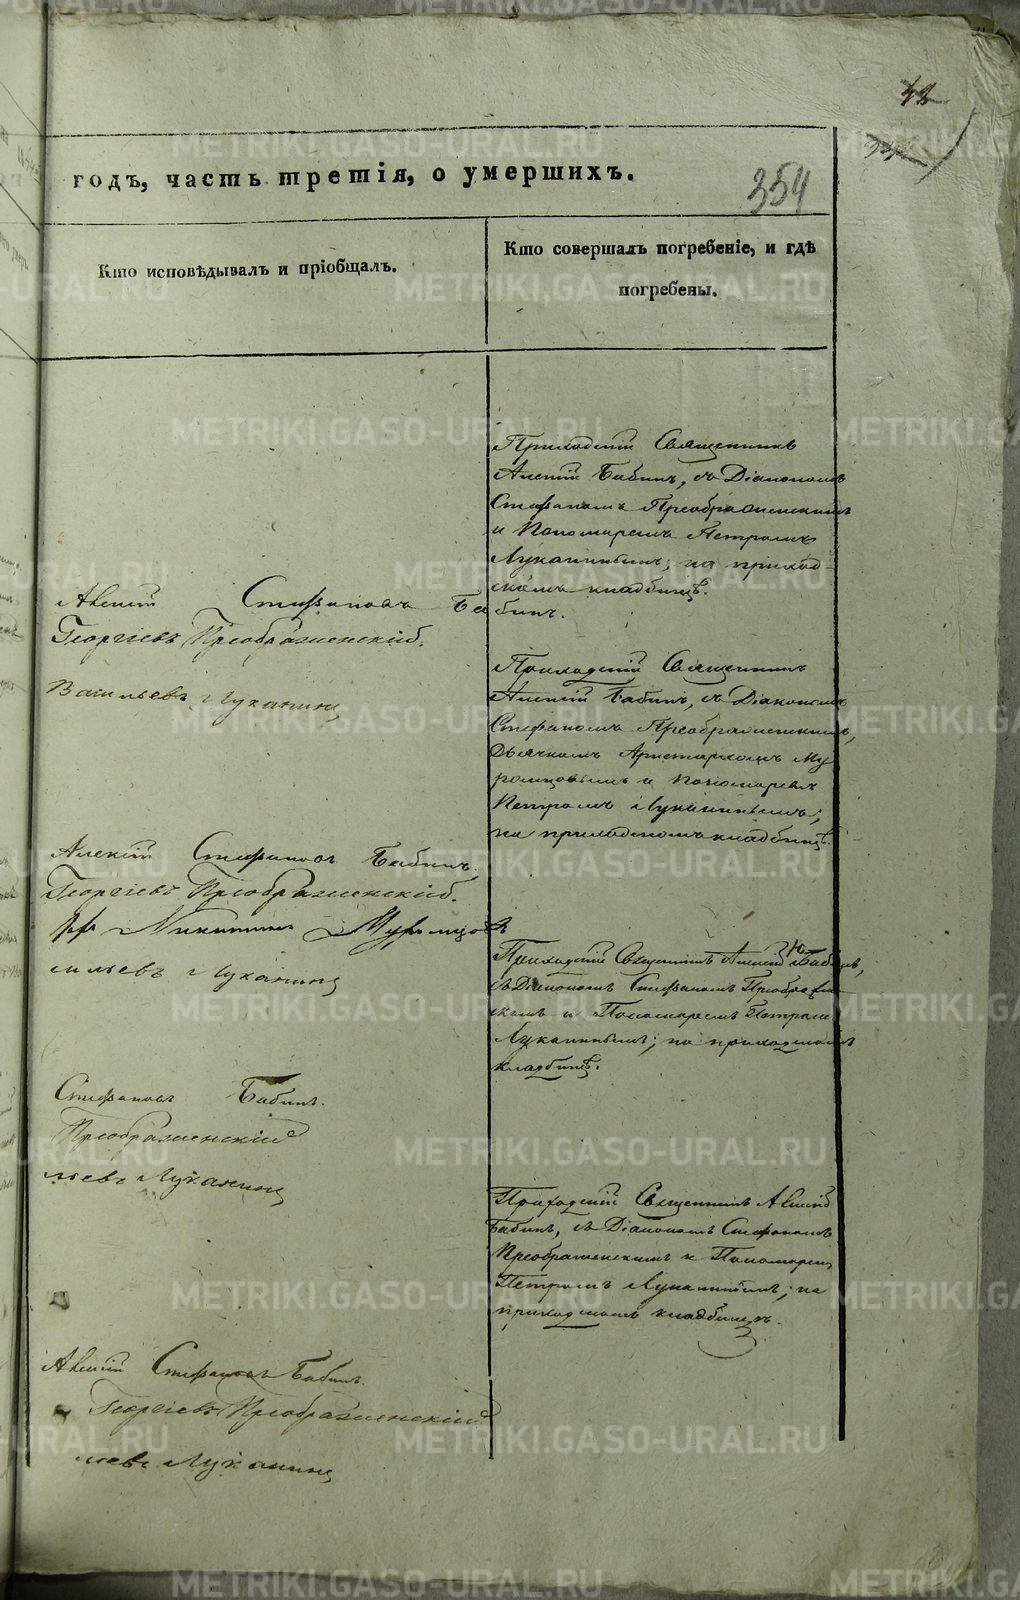 42
годъ, часть третія, о умершихъ.
354
Кто исповѣдывалъ и пріобщалъ.
Кто совершалъ погребеніе, и гдѣ
погребены.
Приходскій Священникъ
Алексій Бабинъ, съ Діакономъ
Стефаномъ Преображенскимъ
и Пономаремъ Петромъ
Луканинымъ; на приход-
скомъ кладбищѣ.
Алексій Стефановъ Бабинъ.
Георгіевъ Преображенскій.
Васильевъ Луканинъ
Приходскій Священникъ
Алексій Бабинъ, съ Діакономъ
Стефаномъ Преображенскимъ,
Дьячкомъ Аристархомъ Му
ромцовымъ и Пономаремъ
Петромъ Луканинымъ;
на приходскомъ кладбищѣ.
Алексій Стефановъ Бабинъ.
Георгіевъ Преображенскій.
Никитинъ Муромцовъ
сильевъ Луканинъ
Приходскій Священникъ Алексій Бабинъ,
съ Діакономъ Стефаномъ Преображен-
скимъ и Пономаремъ Петромъ
Луканинымъ; на приходскомъ
кладбищѣ.
Стефановъ Бабинъ.
Преображенскій
льевъ Луканинъ
Приходскій Священникъ Алексій
Бабинъ, съ Діакономъ Стефаномъ
Преображенскимъ и Пономаремъ
Петромъ Луканинымъ; на
приходскомъ кладбищѣ.
Алексій Стефановъ Бабинъ.
Георгіевъ Преображенскій
льевъ Луканинъ
METRIKI.GASO-URAL.RU